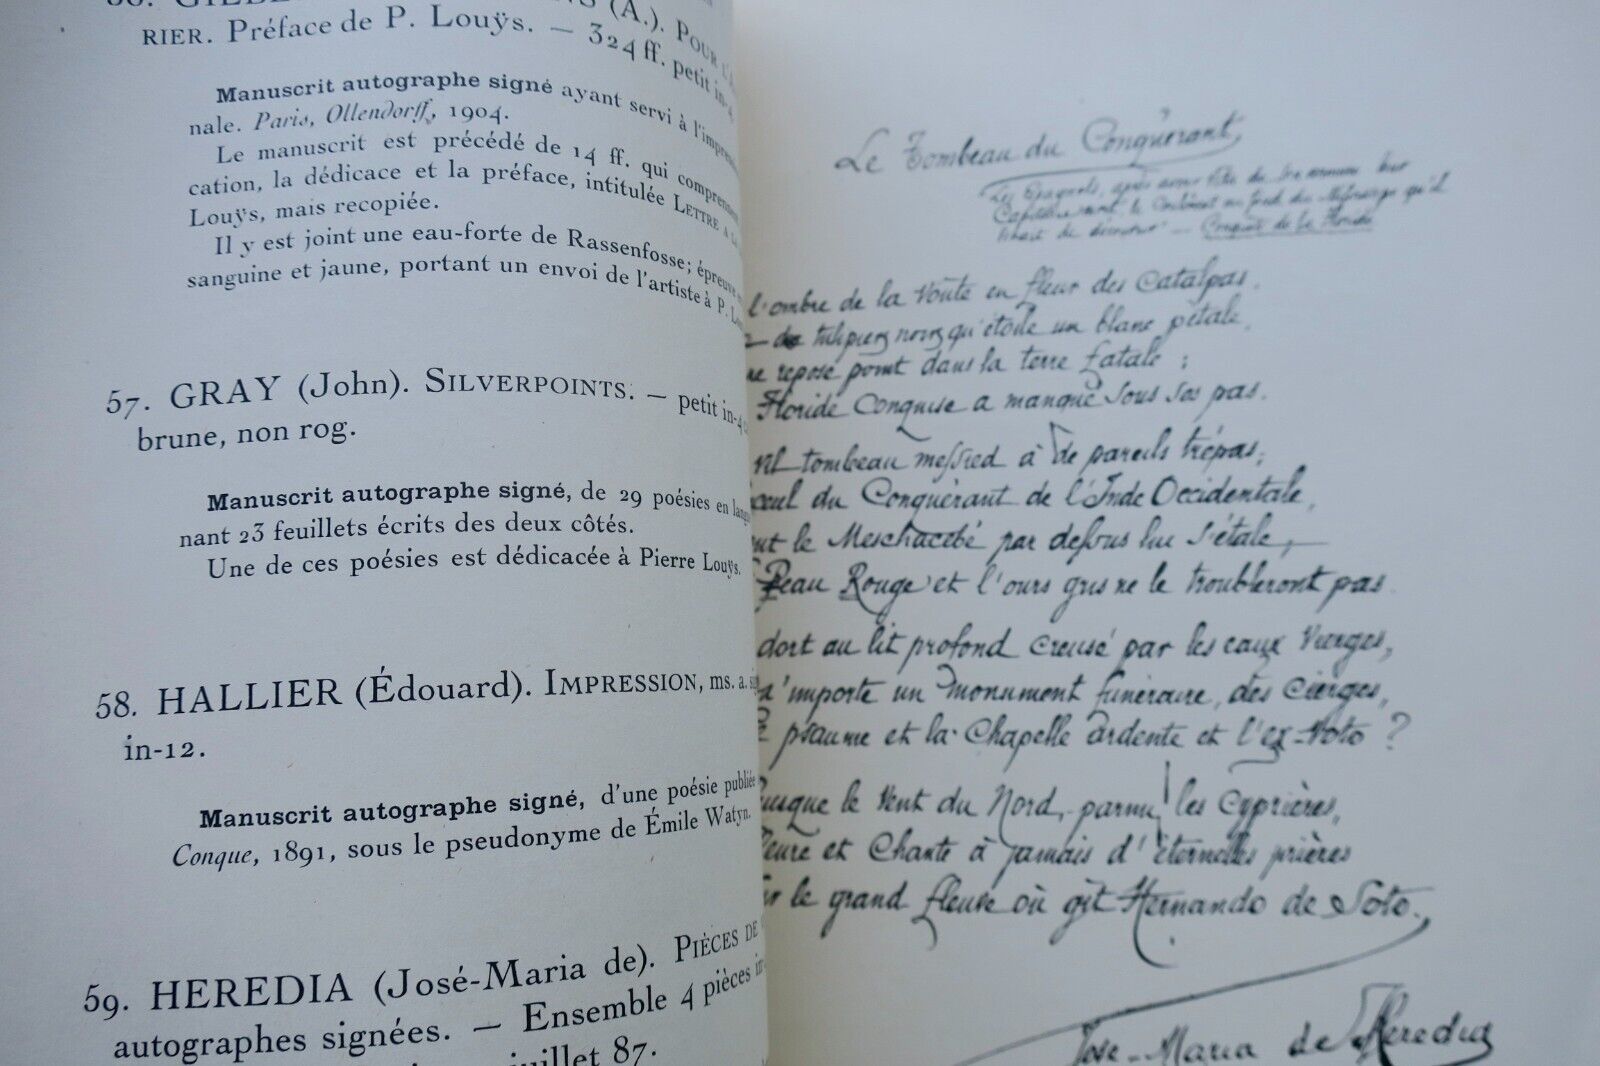 (A.). POUR L'A
RIER. Préface de P. Louÿs. — 324 ff. petit in-4
Manuscrit autographe signé ayant servi à l'impression
nale. Paris, Ollendorff, 1904.
Le manuscrit est précédé de 14 ff. qui comprennent
cation, la dédicace et la préface, intitulée LETTRE A LA
Louÿs, mais recopiée.
Il y est joint une eau-forte de Rassenfosse; épreuve
sanguine et jaune, portant un envoi de l'artiste à P. Lou
57. GRAY (John). SILVERPOINTS. — petit in-4
brune, non rog.
Manuscrit autographe signé, de 29 poésies en lang
nant 23 feuillets écrits des deux côtés.
Une de ces poésies est dédicacée à Pierre Louÿs.
58. HALLIER (Édouard). IMPRESSION, ms. a. si
in-12.
Manuscrit autographe signé, d'une poésie publiée
Conque, 1891, sous le pseudonyme de Émile Watyn.
59. HEREDIA (José-Maria de). PIÈCES DE
autographes signées. — Ensemble 4 pièces in
juillet 87.
Le Tombeau du Conquérant,
Les Espagnols, après avoir
Conquête de la Floride
l'ombre de la voûte en fleur des Catalpas
tulipiers noirs qu'étoile un blanc pétale,
ne repose point dans la terre fatale ;
Floride Conquise a manqué sous ses pas.
tombeau messied à de pareils trépas;
ceul du Conquérant de l'Inde Occidentale,
ut le Meschacébé par dessus lui s'étale,
Peau Rouge et l'ours gris ne le troubleront pas
dort au lit profond creusé par les eaux vierges,
u'importe un monument funéraire, des cierges,
psaume et la Chapelle ardente et l'ex-voto ?
usque le vent du Nord, parmi les cyprières,
leure et chante à jamais d'éternelles prières
ur le grand fleuve où gît Hernando de Soto.
José-Maria de Heredia